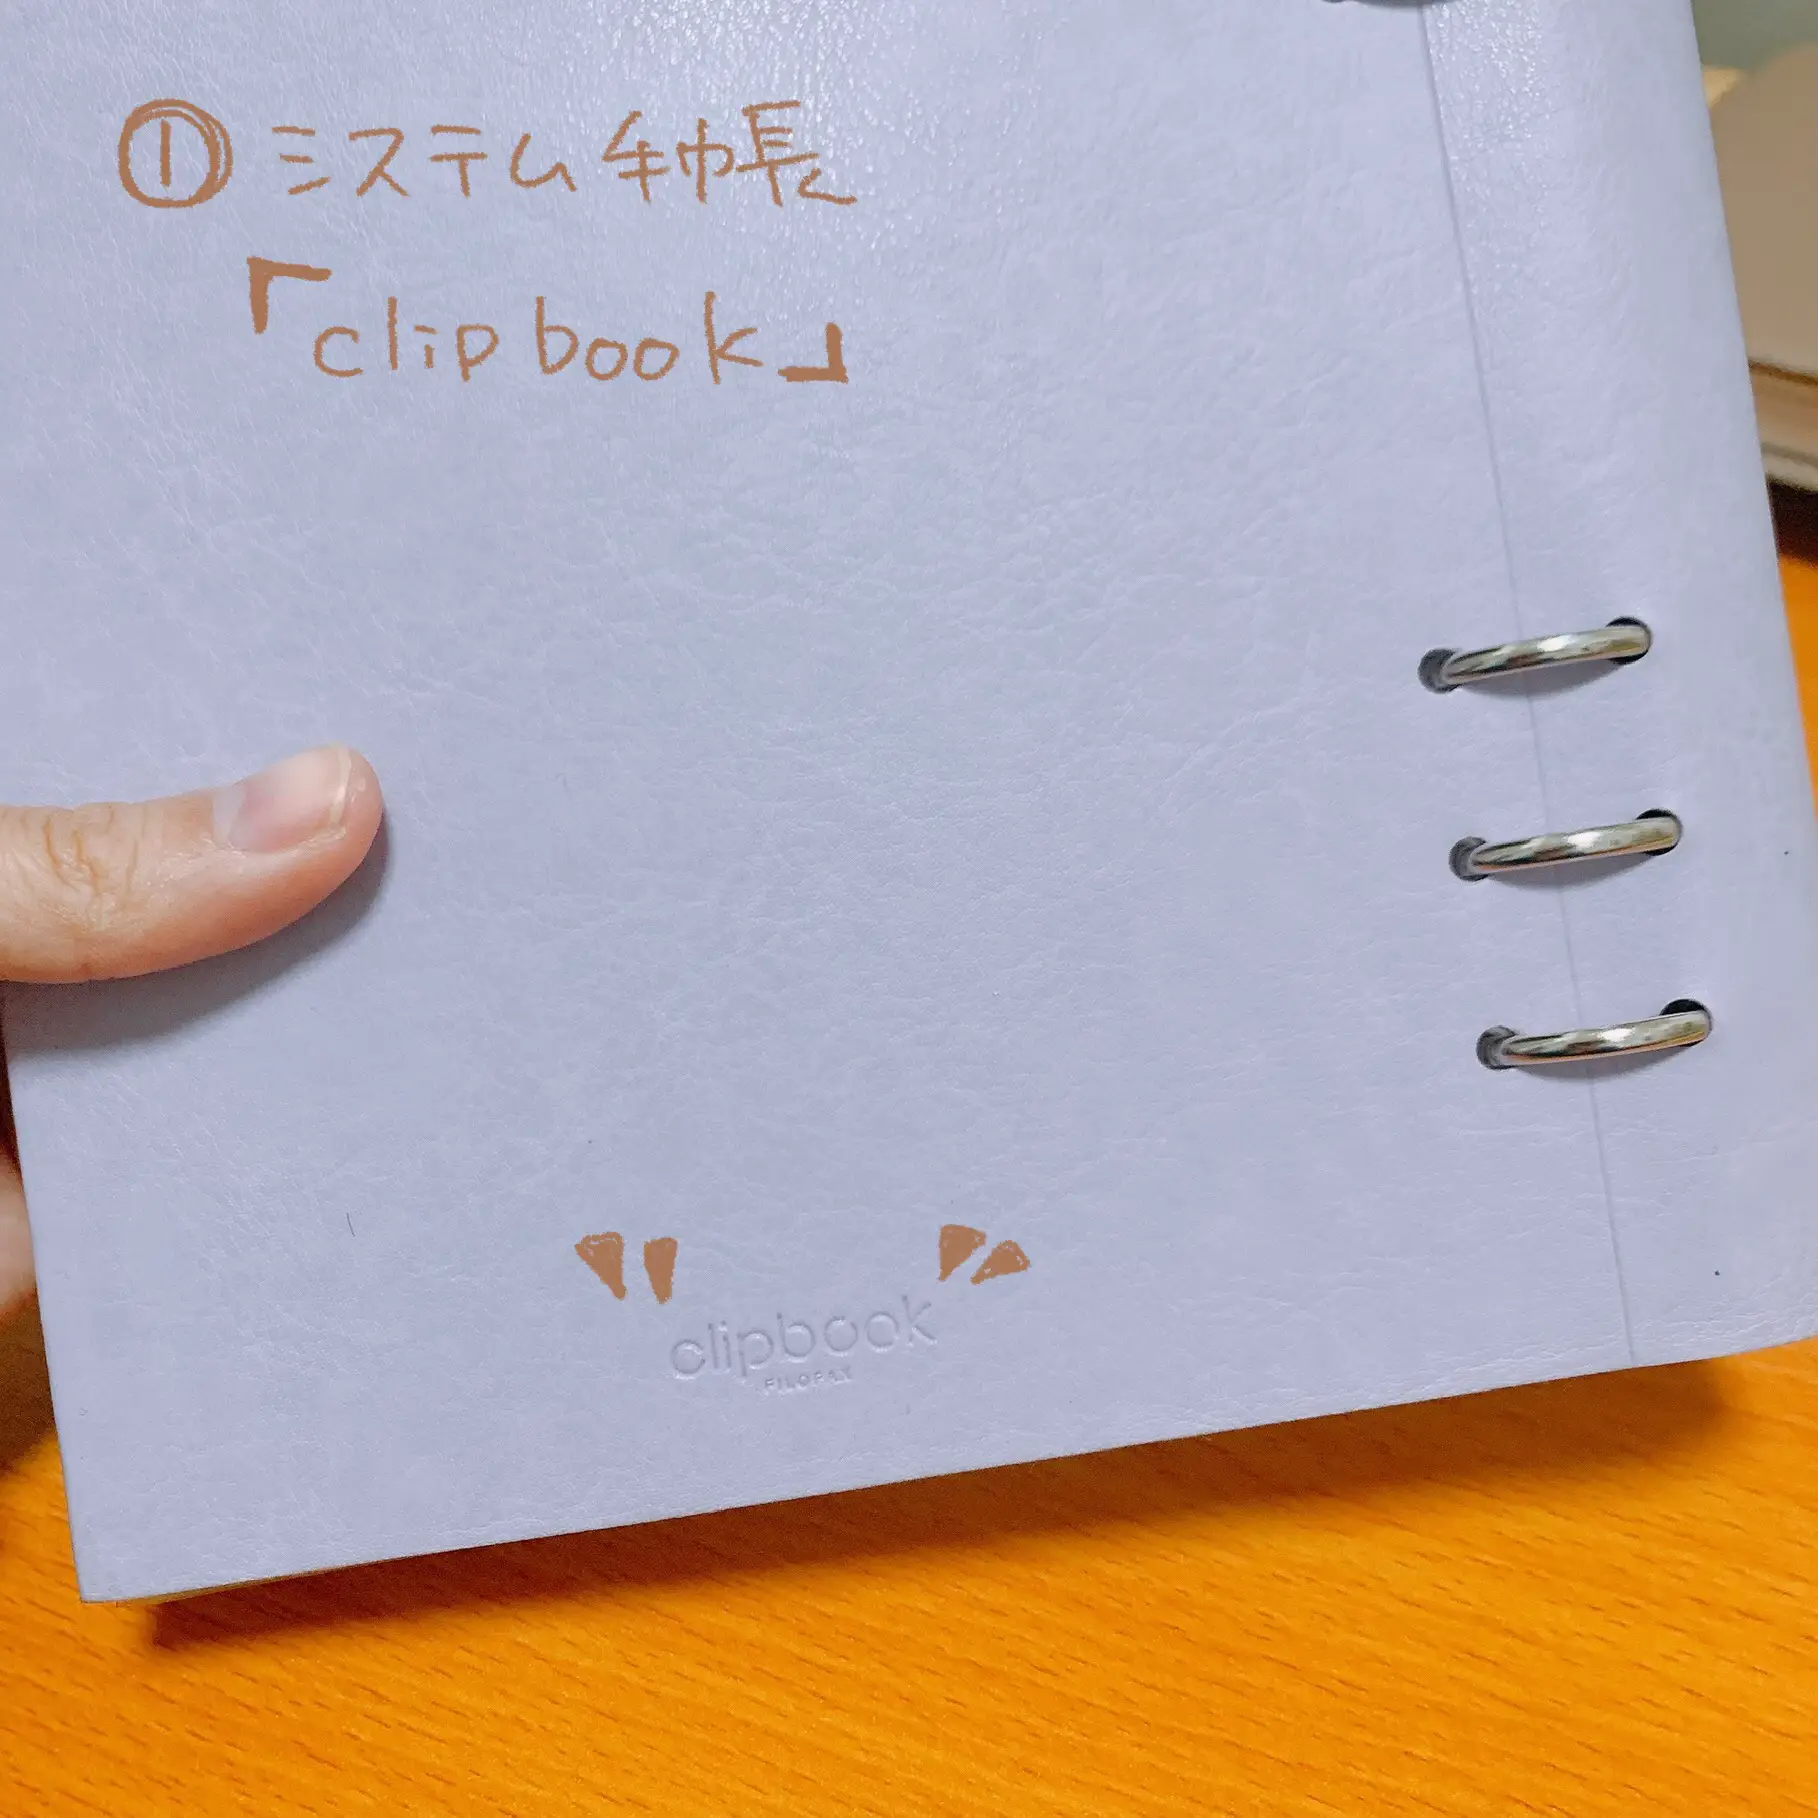 ① システム手帳
「clipbook」
clipbook
FILOFAX